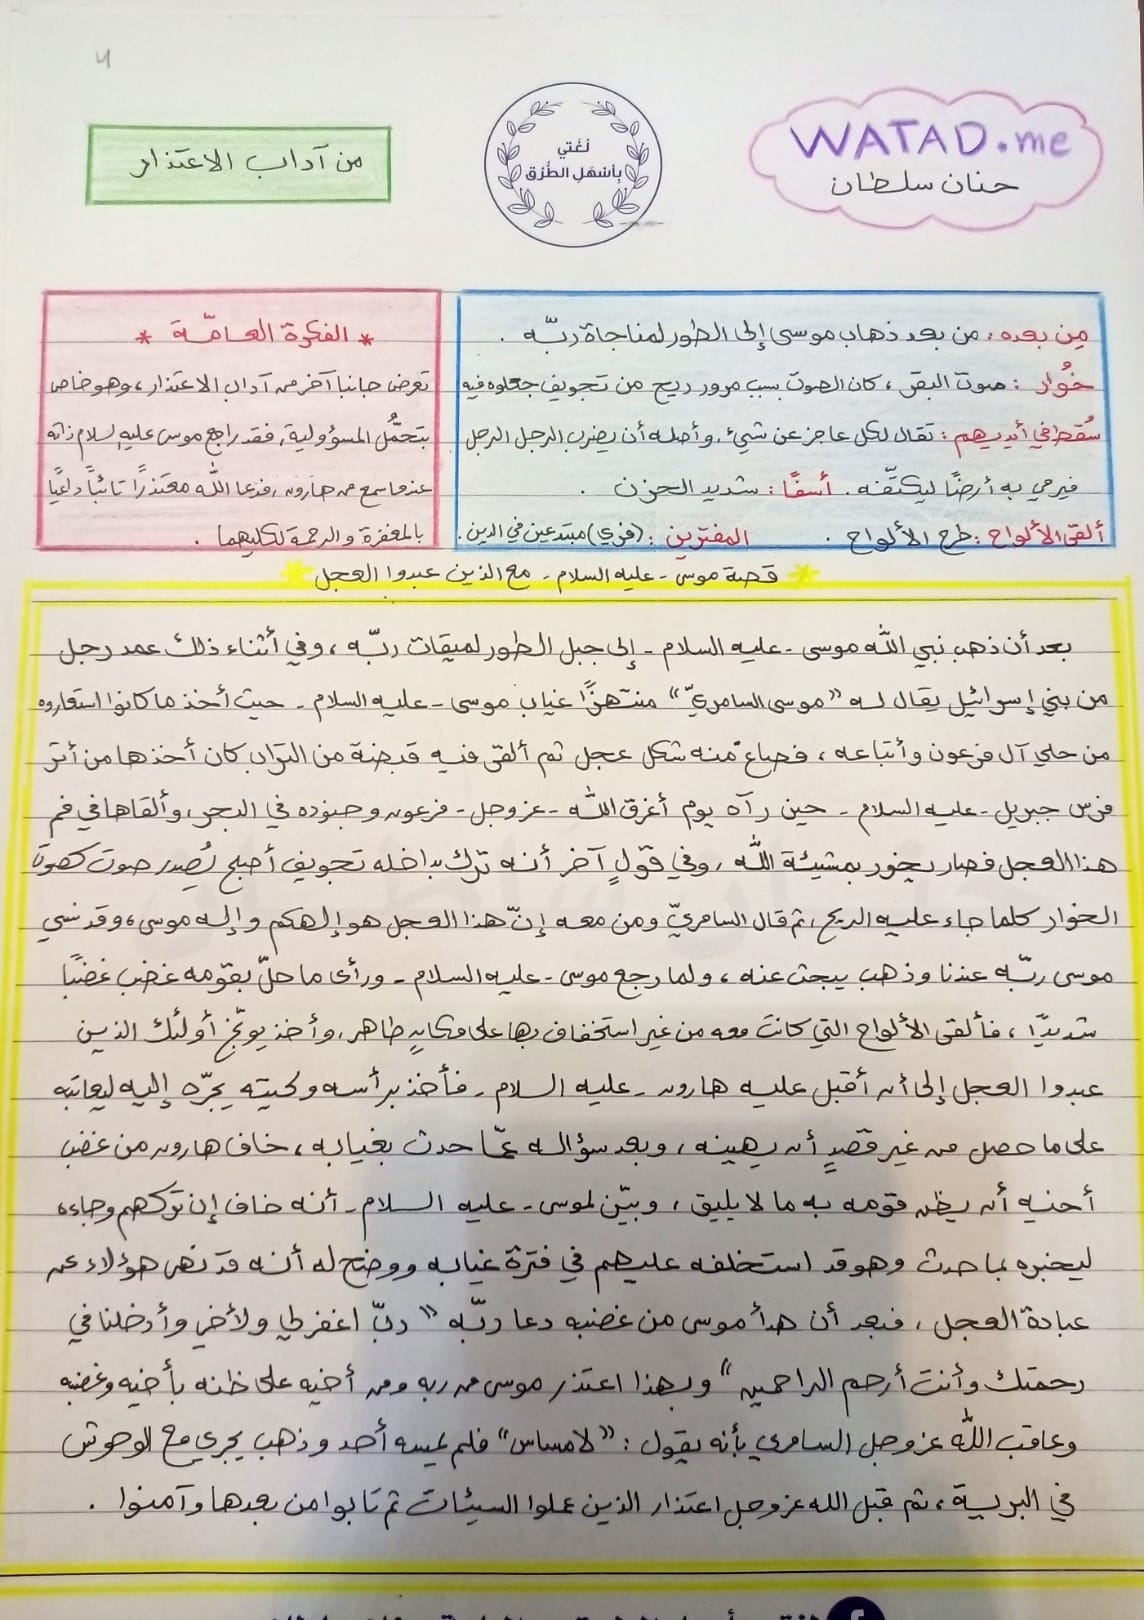 ٤
WATAD.me
حنان سلطان
لُغَتي
بِأَسْهَلِ الطُّرُق
من آداب الاعتذار
مِن بعده: من بعد ذهاب موسى إلى الطور لمناجاة ربّه .
خُوار : صوت البقر ، كان الصوت بسبب مرور ريح من تجويف جعلوه فيه
سُقط في أيديهم : تقال لكل عاجز عن شيء، وأصله أن يضرب الرجل الرجل
فيرمي به أرضًا ليكتّفه. أسفًا : شديد الحزن .
ألقى الألواح : طرح الألواح . المفترين : (فري) مبتدعين في الدين .
* الفكرة العامّة *
تعرض جانبا آخر من آداب الاعتذار ، وهو خاص
بتحمُّل المسؤولية، فقد راجع موسى عليه السلام ذاته
عندما سمع من هارون، فدعا الله معتذرًا تائبًا داعيًا
بالمغفرة والرحمة لكليهما .
* قصة موسى - عليه السلام - مع الذين عبدوا العجل *
بعد أن ذهب نبي الله موسى - عليه السلام - إلى جبل الطور لميقات ربّه ، وفي أثناء ذلك عمد رجل
من بني إسرائيل يقال له "موسى السامريّ" منتهزًا غياب موسى - عليه السلام - حيث أخذ ما كانوا استعاروه
من حلي آل فرعون وأتباعه ، فصاغ منه شكل عجل ثم ألقى فيه قبضة من التراب كان أخذها من أثر
فرس جبريل - عليه السلام - حين رآه يوم أغرق الله - عز وجل - فرعون وجنوده في البحر، وألقاها في فم
هذا العجل فصار يخور بمشيئة الله ، وفي قولٍ آخر أنه ترك بداخله تجويف أصبح يُصدر صوت كصوت
الخوار كلما جاء عليه الريح، ثم قال السامريّ ومن معه إنّ هذا العجل هو إلهكم وإله موسى، وقد نسي
موسى ربّه عندنا وذهب يبحث عنه ، ولما رجع موسى - عليه السلام - ورأى ما حلّ بقومه غضب غضبًا
شديدًا ، فألقى الألواح التي كانت معه من غير استخفاف بها على مكانٍ طاهر، وأخذ يوبّخ أولئك الذين
عبدوا العجل إلى أن أقبل عليه هارون - عليه السلام - فأخذ برأسه ولحيته يجرّه إليه ليعاتبه
على ما حصل من غير قصدٍ أن يهينه ، وبعد سؤاله عمّا حدث بغيابه ، خاف هارون من غضب
أخيه أن يظن قومه به ما لا يليق ، وبيّن لموسى - عليه السلام - أنه خاف إن تركهم وجاءه
ليخبره بما حدث وهو قد استخلفه عليهم في فترة غيابه ووضح له أنه قد نهى هؤلاء عن
عبادة العجل ، فبعد أن هدأ موسى من غضبه دعا ربّه "ربّ اغفر لي ولأخي وأدخلنا في
رحمتك وأنت أرحم الراحمين" وبهذا اعتذر موسى من ربه ومن أخيه على ظنه بأخيه وغضبه
وعاقب الله عز وجل السامري بأنه يقول : "لامساس" فلم يمسه أحد وذهب يجري مع الوحوش
في البرية ، ثم قبل الله عز وجل اعتذار الذين عملوا السيئات ثم تابوا من بعدها وآمنوا .